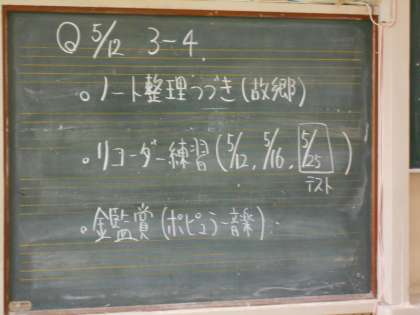 Q 5/12 3-4
。ノート整理つづき(故郷)
。リコーダー練習(5/12, 5/16, 5/25)
テスト
。鑑賞(ポピュラー音楽)